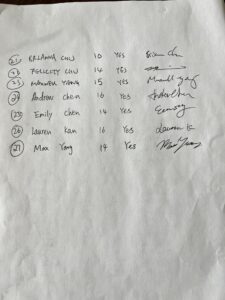 21 BRIANNA CHU 10 YES Brianna Chu
22 FELICITY CHU 14 YES
23 YANG 15 YES
24 Andrew Chen 16 Yes Andrew Chen
25 Emily Chen 14 Yes Emily
26 Lauren Kan 16 Yes Lauren K
27 Max Yang 14 Yes Max Yang